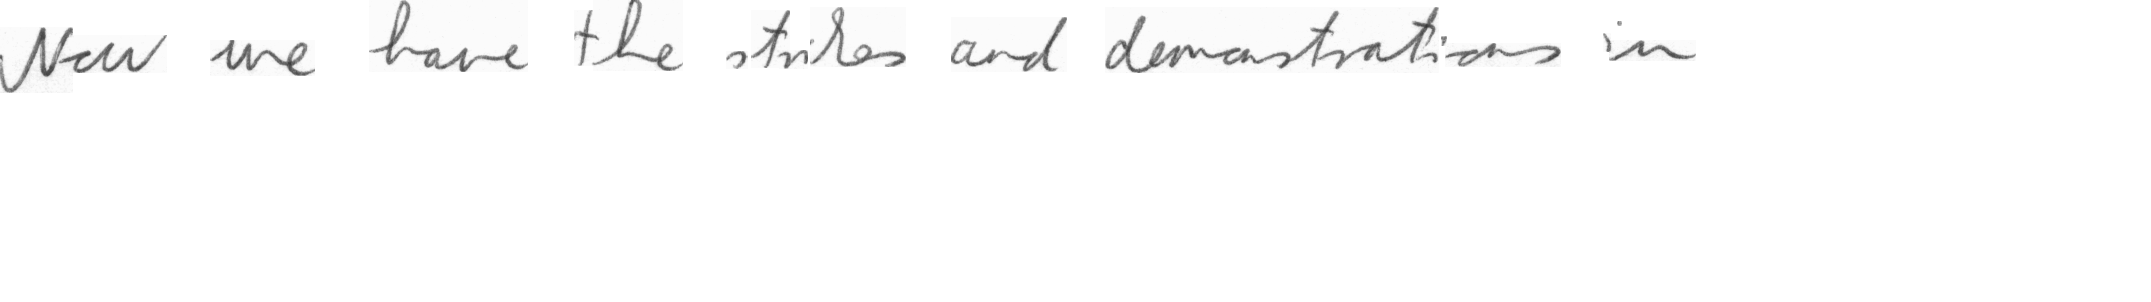 Now we have the strikes and demonstrations in